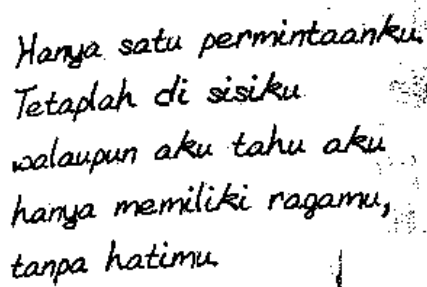 Hanya satu permintaanku.
Tetaplah di sisiku
walaupun aku tahu aku
hanya memiliki ragamu,
tanpa hatimu.